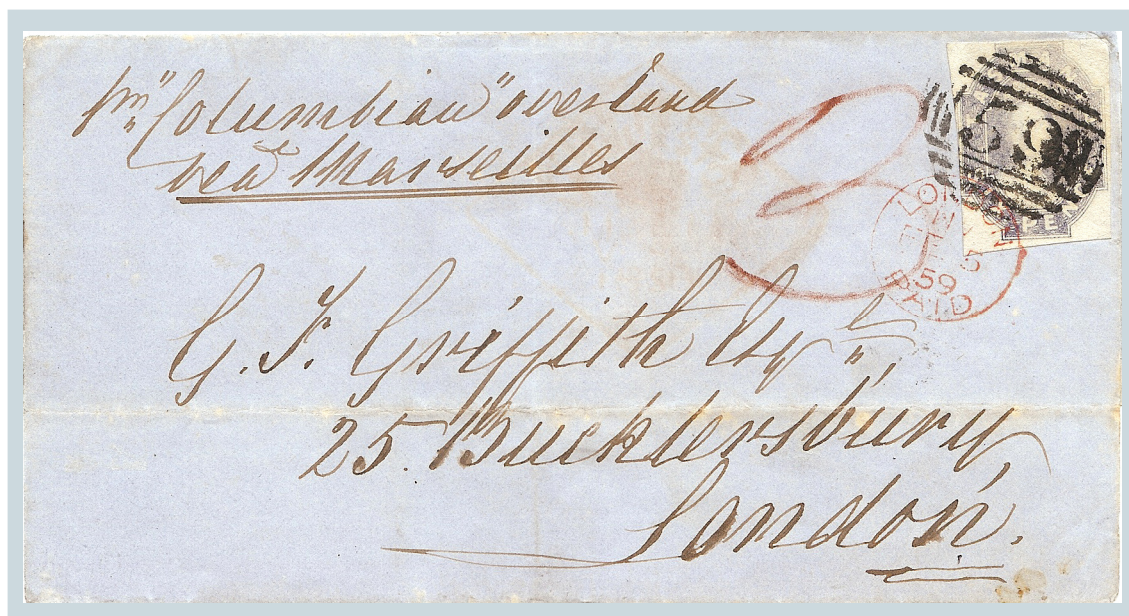 pr "Columbian" overland
via Marseilles
3
LONDON
59
PAID
G. F. Griffith Esqre
25. Bucklersbury
London.